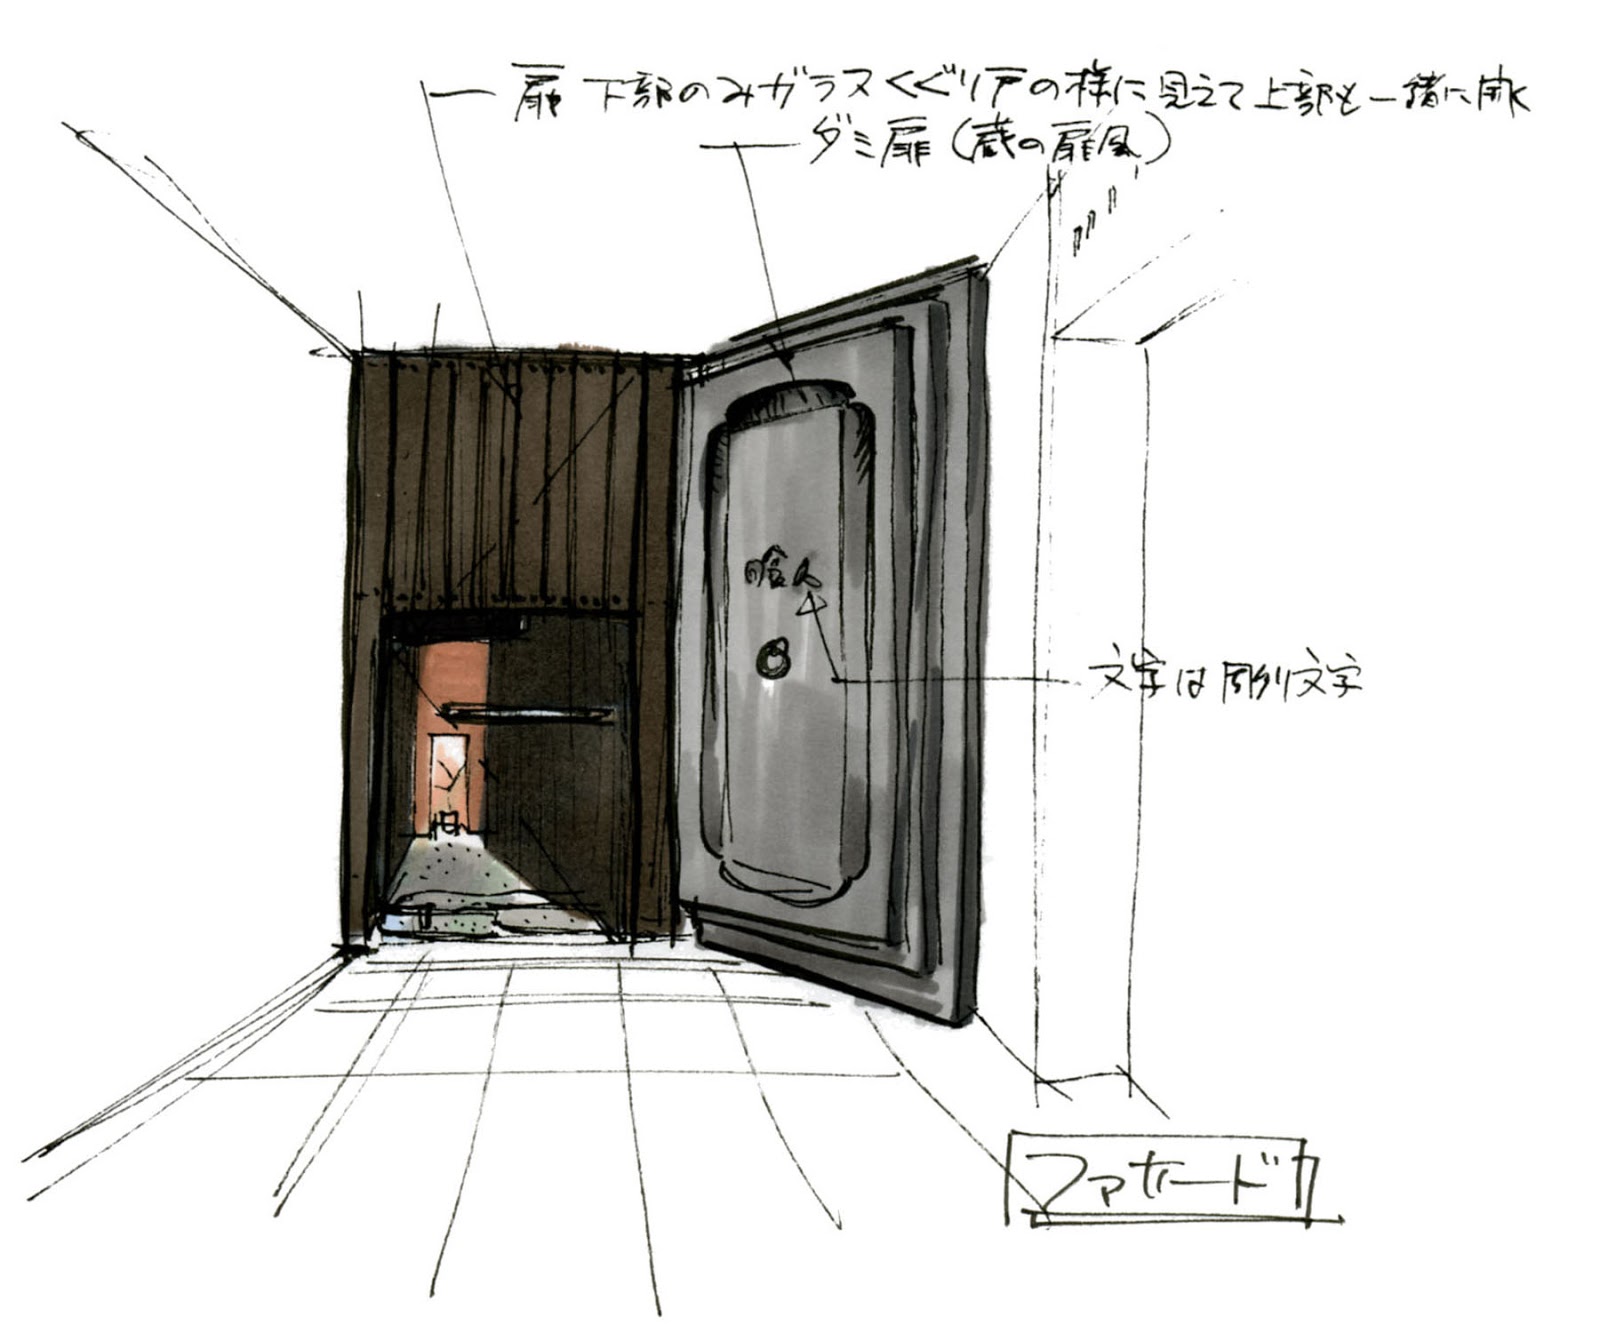 扉 下部のみガラスくぐり戸の様に見えて上部も一緒に開く
ダミ扉(蔵の扉風)
文字は彫刻文字
ファサード